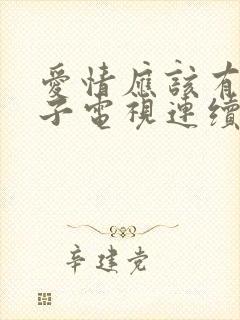 愛情應該有
子電視連續
辛建党